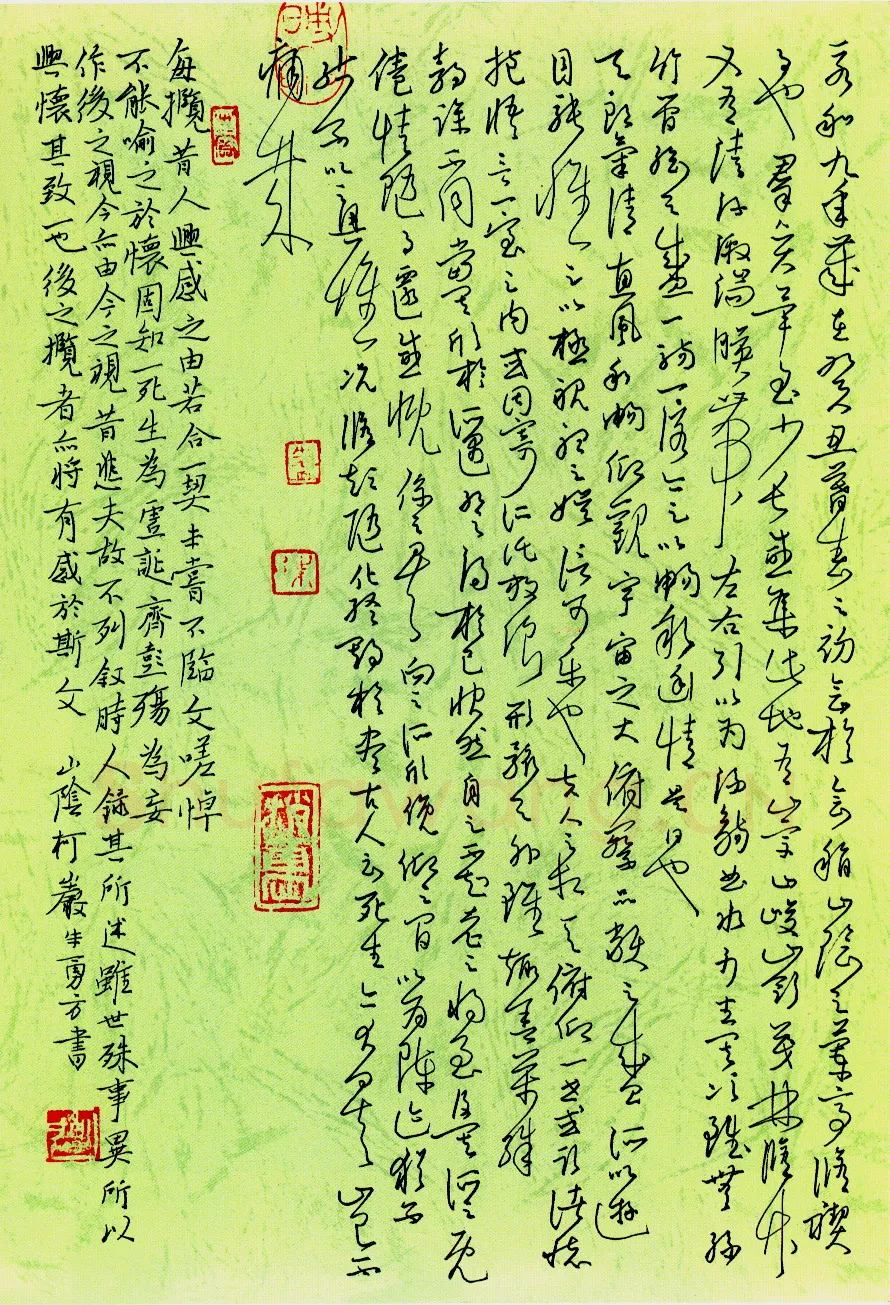 永和九年歲在癸丑暮春之初會於會稽山陰之蘭亭脩禊
事也群賢畢至少長咸集此地有崇山峻嶺茂林脩竹
又有清流激湍映帶左右引以為流觴曲水列坐其次雖無絲
竹管絃之盛一觴一詠亦足以暢敘幽情是日也
天朗氣清惠風和暢仰觀宇宙之大俯察品類之盛所以遊
目騁懷足以極視聽之娛信可樂也夫人之相與俯仰一世或取諸懷
抱悟言一室之內或因寄所託放浪形骸之外雖趣舍萬殊
靜躁不同當其欣於所遇暫得於己快然自足不知老之將至及其所之既
倦情隨事遷感慨係之矣向之所欣俛仰之間以為陳迹猶不
能不以之興懷況脩短隨化終期於盡古人云死生亦大矣豈不
痛哉
每攬昔人興感之由若合一契未嘗不臨文嗟悼
不能喻之於懷固知一死生為虛誕齊彭殤為妄
作後之視今亦由今之視昔悲夫故不列敘時人錄其所述雖世殊事異所以
興懷其致一也後之攬者亦將有感於斯文 山陰柯巖朱勇方書